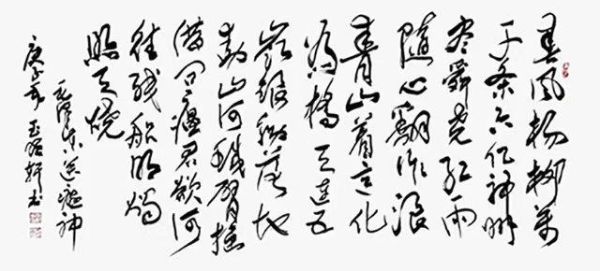 春风杨柳万
千条六亿神州
尽舜尧红雨
随心翻作浪
青山着意化
为桥天连五
岭银锄落地
动山河铁臂摇
借问瘟君欲何
往纸船明烛
照天烧
毛泽东送瘟神
庚子年 轩书